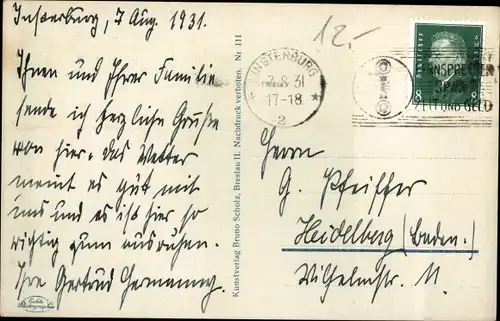 Insterburg, 7 Aug. 1931.
12.-
Ihnen und Ihrer Familie
sende ich herzliche Grüße
von hier. das Wetter
meint es gut mit
uns und es ist hier so
richtig zum ausruhen.
Ihre Gertrud
Echte
Photographie
Kunstverlag Bruno Scholz, Breslau II. Nachdruck verboten. Nr. 111
INSTERBURG
7.8.31
17-18
FERNSPRECHEN
SPART
ZEIT UND GELD
8
Herrn
G. Pfeiffer
Heidelberg (Baden.)
Wilhelmstr. 11.